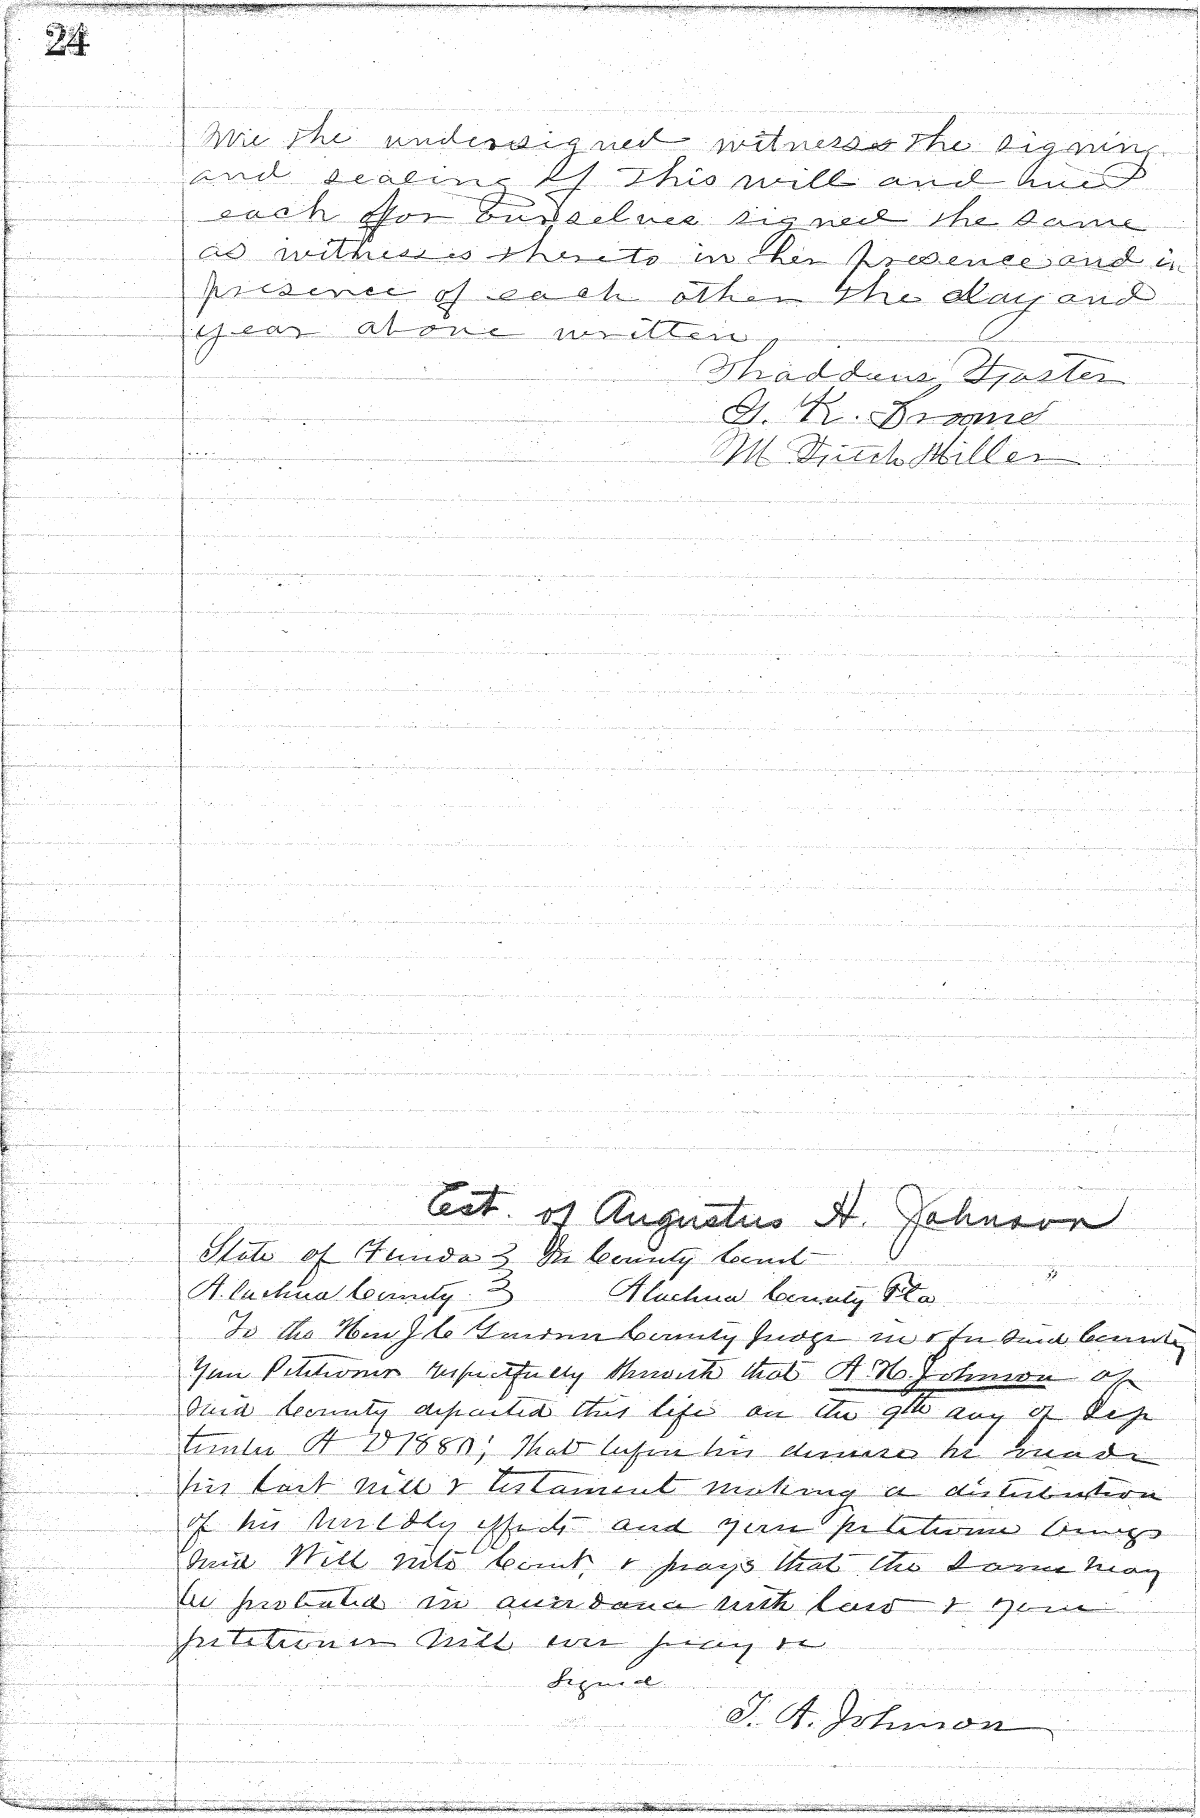 24
We the undersigned witness the signing
and sealing of this will and have
each for ourselves signed the same
as witnesses thereto in her presence and in
presence of each other the day and
year above written
Thaddeus Foster
G. K. Broome
M Fitch Miller
Est. of Augustus H. Johnson
State of Florida } In County Court
Alachua County } Alachua County Fla
To the Hon J C Gardner County Judge in & for said County
Your Petitioner respectfully showeth that A. H. Johnson of
said County departed this life on the 9th day of Sep
tember A D 1880; That before his demise he made
his last will & testament making a distribution
of his worldly effects and your petitioner brings
said Will into Court, & prays that the same may
be probated in accordance with law & your
petitioner will ever pray &c
Signed
T. A. Johnson